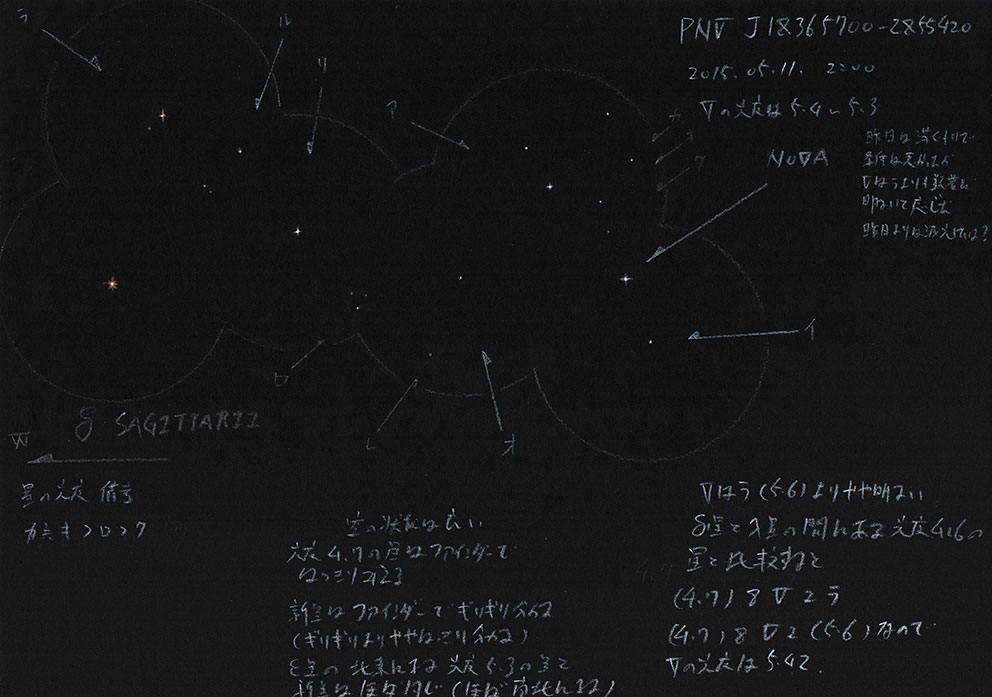 ラ
ル
リ
ア
カ
キ
ク
PNV J18365700-2855420
2015.05.11. 2:00
Vの光度は5.4〜5.3
NOVA
昨日は薄くもりで
Vはラよりも
明るいて感じた
昨日よりは減光では?
イ
ロ
レ
オ
δ SAGITTARII
W
星の光度 備考
カ≧キ>ロ>ク
空の状態は良い
光度4.7の星はファインダーで
はっきり見える
新星はファインダーでギリギリ分かる
(ギリギリよりややはっきり分かる)
ε星の北東にある 光度5.3の星と
新星はほぼ同じ(ほぼ南北にある)
Vはラ(5.6)よりやや明るい
δ星とλ星の間にある光度4.6の
星と比較すると
(4.7) 8 V 2 ラ
(4.7) 8 V 2 (5.6) なので
Vの光度は5.42.